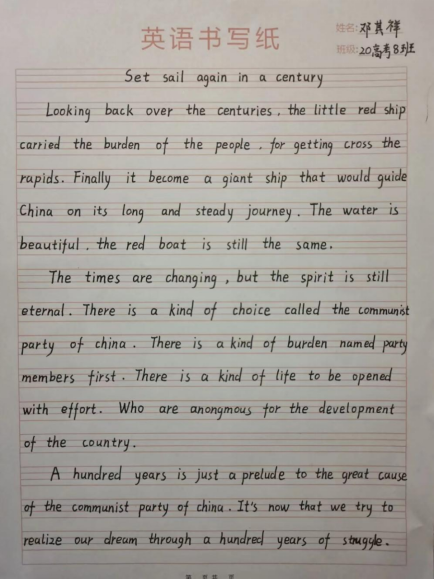 英语书写纸
姓名: 邓其祥
班级: 20高考8班
Set sail again in a century
Looking back over the centuries, the little red ship
carried the burden of the people, for getting cross the
rapids. Finally it become a giant ship that would guide
China on its long and steady journey. The water is
beautiful, the red boat is still the same.
The times are changing, but the spirit is still
eternal. There is a kind of choice called the communist
party of china. There is a kind of burden named party
members first. There is a kind of life to be opened
with effort. Who are anongmous for the development
of the country.
A hundred years is just a prelude to the great cause
of the communist party of china. It's now that we try to
realize our dream through a hundred years of struggle.